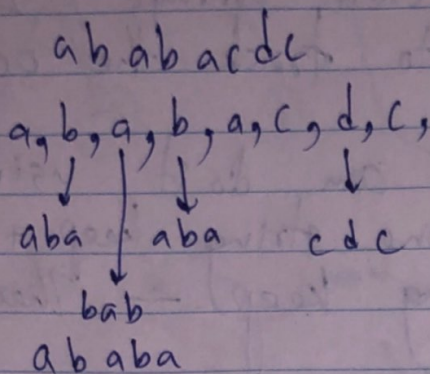 ab ab acdc
a, b, a, b, a, c, d, c,
aba aba cdc
bab
ab aba